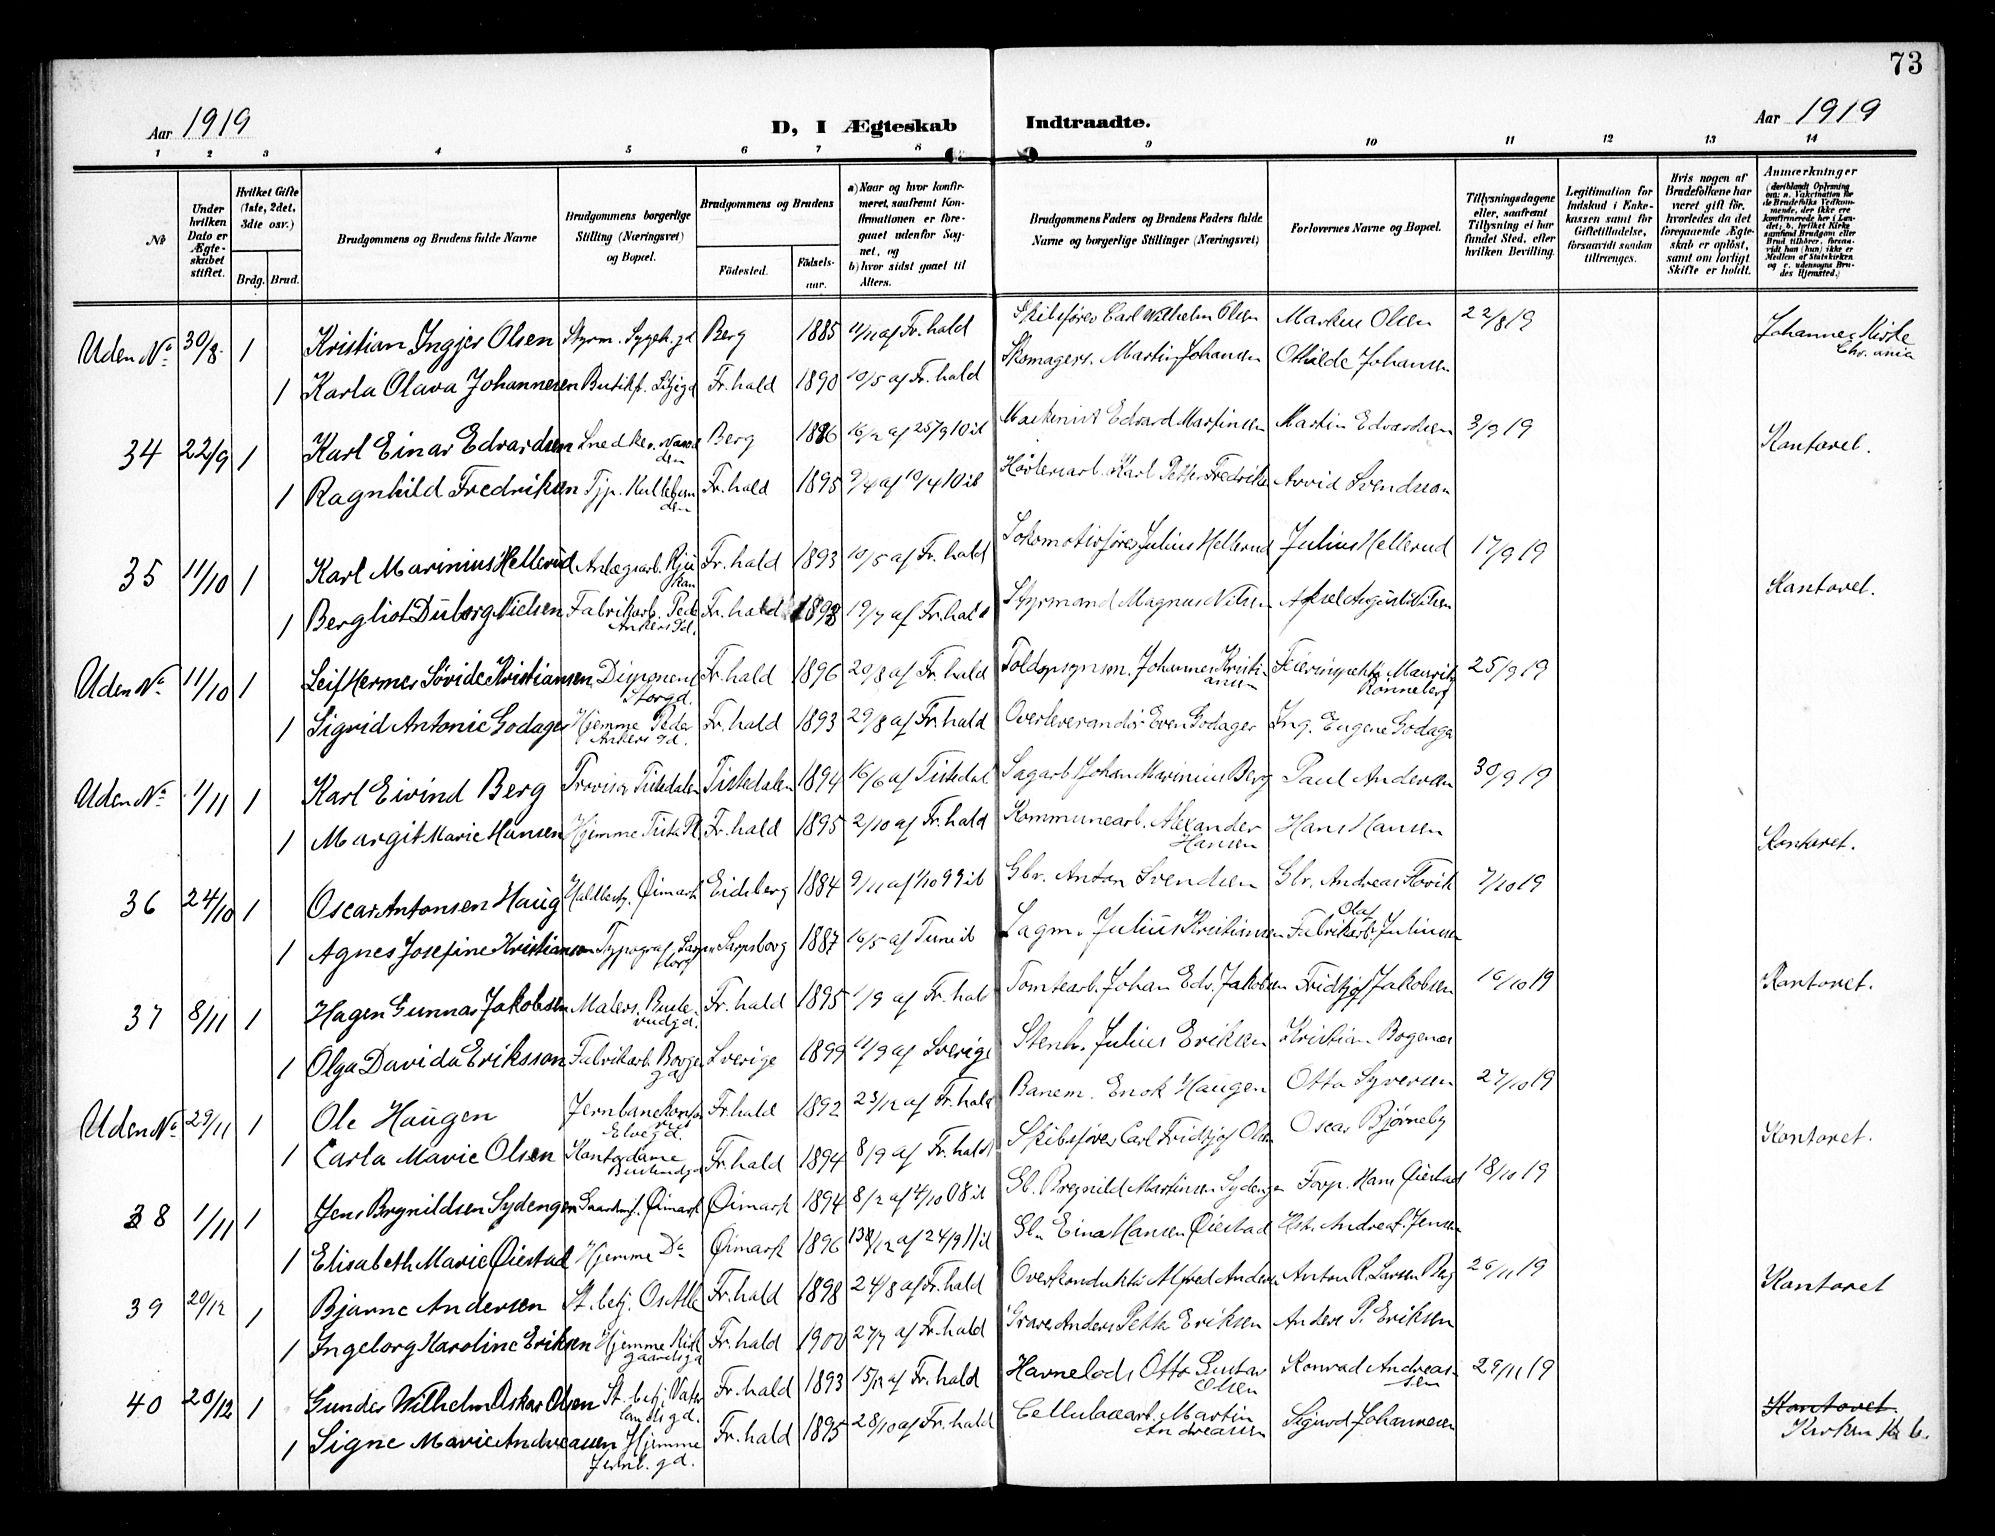 73
Aar 1919 D, I Ægteskab Indtraadte. Aar 1919
1 2 3 4 5 6 7 8 9 10 11 12 13 14
№
Under hvilken Dato er Ægteskabet stiftet.
Hvilket Gifte (1ste, 2det, 3dte osv.)
Brdg. Brud.
Brudgommens og Brudens fulde Navne
Brudgommens borgerlige Stilling (Næringsvei) og Bopæl.
Brudgommens og Brudens
Födested. Födsels-aar.
a) Naar og hvor konfirmeret, saafremt Konfirmationen er foregaaet udenfor Sognet, og
b) hvor sidst gaaet til Alters.
Brudgommens Faders og Brudens Faders fulde Navne og borgerlige Stillinger (Næringsvei)
Forlovernes Navne og Bopæl.
Tillysningsdagene eller, saafremt Tillysning ei har fundet Sted, efter hvilken Bevilling.
Legitimation for Indskud i Enkekassen samt for Giftetilladelse, forsaavidt saadan tiltrænges.
Hvis nogen af Brudefolkene har været gift før, hvorledes da det foregaaende Ægteskab er oplöst, samt om lovligt Skifte er holdt.
Anmærkninger
Uden No. 30/8 1 Kristian Ingjer Olsen Styrm. Sygeh.gd Berg 1885 11/11 af Fr.hald Skibsfører Carl Wilhelm Olsen Markus Olsen 22/8 19 Johannes Kirke Chr.ania
1 Karla Olava Johannesen Fr.hald 1890 10/5 af Fr.hald Skomagers. Martin Johansen Othilde Johansen
34 22/9 1 Karl Einar Edvardsen Snedker. Berg 1886 16/2 af 25/9 10 ib Maskinist Edvard Martinsen Martin Edvardsen 3/9 19 Kontoret.
1 Ragnhild Fredriksen Fr.hald 1895 9/4 af 10/4 10 ib Karl Petter Fredriks Arvid Svendsen
35 11/10 1 Karl Marinius Hellerud Anlægsarb. Rjukan Fr.hald 1893 10/5 af Fr.hald Lokomotivfører Julius Hellerud Julius Hellerud 17/9 19 Kontoret.
1 Bergliot Duborg Nielsen Fabrikarb. Peder Ankers gd. Fr.hald 1892 19/7 af Fr.hald Styrmand Magnus Nilsen Aksel August Nilsen
Uden No. 11/10 1 Leif Hermer Søvide Kristiansen Disponent Storgd. Fr.hald 1896 20/8 af Fr.hald Toldopsynsm. Johannes Kristiansen Mauritz Rønneberg 25/9 19
1 Sigrid Antonie Godager Hjemme Peder Ankers gd. Fr.hald 1893 29/8 af Fr.hald Overleverandør Even Godager Ing. Eugene Godager
Uden No. 1/11 1 Karl Eivind Berg Provisor Tistedalen Tistedalen 1894 16/6 af Tistedal Sagarb Johan Marinius Berg Paul Andersen 30/9 19
1 Margit Marie Hansen Hjemme Tista Pl Fr.hald 1895 2/10 af Fr.hald Kommunearb. Alexander Hansen Hans Hansen Kontoret.
36 24/10 1 Oscar Antonsen Haug Øimark Eidsberg 1884 9/11 af 1/10 99 ib Gbr. Anton Svendsen Gbr. Andreas Slovik 7/10 19
1 Agnes Josefine Kristiansen Typograf Sarpsborg Sarpsborg 1887 16/5 af Tune ib Lagm. Julius Kristiansen Fabrikarb. Olaf Juliussen
37 8/11 1 Hagen Gunnar Jakobsen Malers. Buslerudgd. Fr.hald 1895 1/9 af Fr.hald Tomtearb. Johan Edv. Jakobsen Fridtjof Jakobsen 16/10 19 Kontoret.
1 Olga Davida Eriksson Fabrikarb. Borgergd Sverige 1899 11/9 af Sverige Stenh. Julius Eriksen Kristian Bogenæs
Uden No. 29/11 1 Ole Haugen Elvegd. Fr.hald 1892 23/12 af Fr.hald Banem. Enok Haugen Otto Syversen 27/10 19
1 Carla Marie Olsen Kontordame Buslerudgd Fr.hald 1894 8/9 af Fr.hald Skibsfører Carl Fridtjof Olsen Oscar Bjørneby Kontoret.
38 1/11 1 Jens Brynildsen Sydengen Øimark Øimark 1894 8/12 af 4/10 08 ib Gb. Brynild Martinsen Sydengen Forp. Hans Øiestad 18/10 19
1 Elisabeth Marie Øiestad Hjemme Do Øimark 1896 13/12 af 24/9 11 ib Gbr. Einar Hansen Øiestad Andreas Jensen
39 20/12 1 Bjarne Andersen St. betj. Os Alle Fr.hald 1898 24/8 af Fr.hald Overkonduktør Alfred Andersen Anton R. Larsen Berg 26/11 19 Kontoret
1 Ingeborg Karoline Eriksen Hjemme Kirkegaardsgd Fr.hald 1900 27/7 af Fr.hald Graver Anders Petter Eriksen Anders P. Eriksen
40 20/12 1 Gunder Wilhelm Oskar Olsen St. betj. Vaterlandsgd. Fr.hald 1893 15/12 af Fr.hald Havnelods Otto Gustav Olsen Konrad Andreassen 29/11 19 Kontoret
1 Signe Marie Andreassen Hjemme Jernb.gd. Fr.hald 1895 28/10 af Fr.hald Cellulosearb. Martin Andreassen Sigurd Johannesen